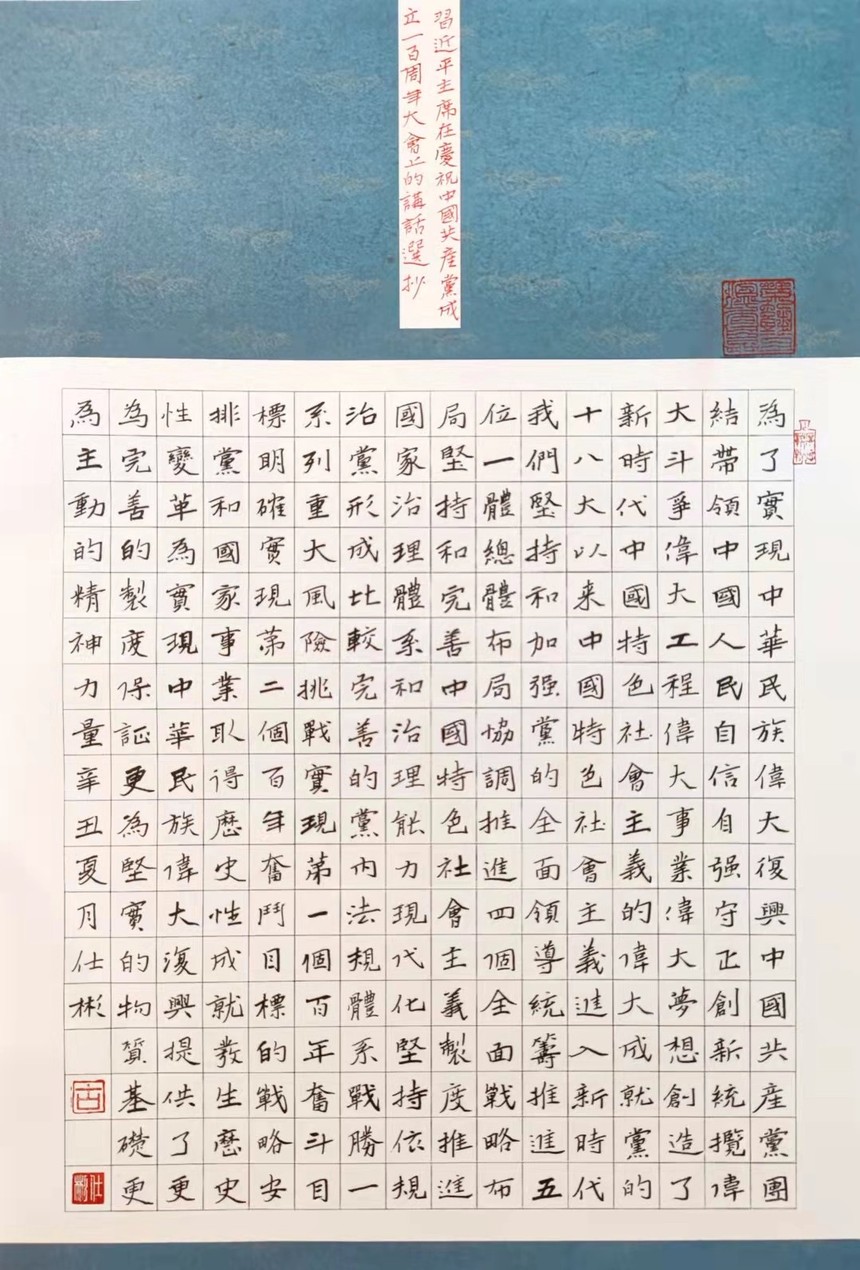 習近平主席在慶祝中國共產黨成
立一百周年大會上的講話選抄
為了實現中華民族偉大復興中國共產黨團
結帶領中國人民自信自强守正創新統攬偉
大斗爭偉大工程偉大事業偉大夢想創造了
新時代中國特色社會主義的偉大成就黨的
十八大以来中國特色社會主義進入新時代
我們堅持和加强黨的全面領導統籌推進五
位一體總體布局協調推進四個全面戰略布
局堅持和完善中國特色社會主義製度推進
國家治理體系和治理能力現代化堅持依規
治黨形成比較完善的黨内法規體系戰勝一
系列重大風險挑戰實現第一個百年奮斗目
標明確實現第二個百年奮鬥目標的戰略安
排黨和國家事業取得歷史性成就發生歷史
性變革為實現中華民族偉大復興提供了更
為完善的製度保証更為堅實的物質基礎更
為主動的精神力量辛丑夏月仕彬
仕彬